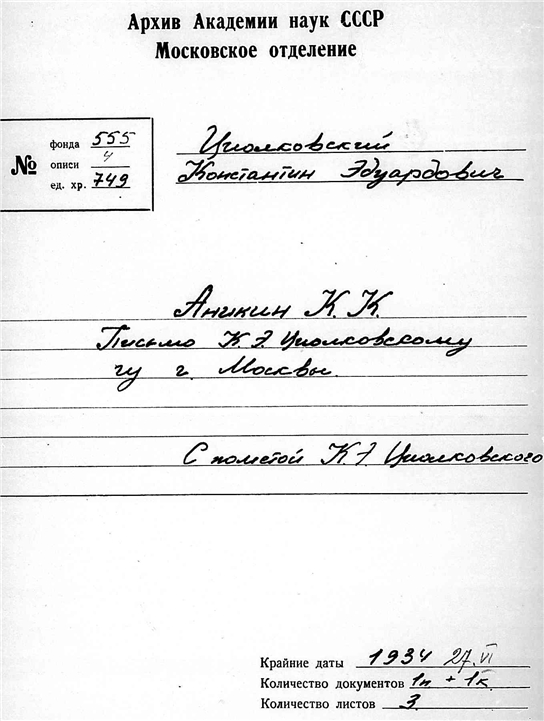 Архив Академии наук СССР
Московское отделение
№
фонда 555
описи 4
ед. хр. 749
Циолковский
Константин Эдуардович
Аникин К. К.
Письмо К. Э. Циолковскому
г. Москвы.
С пометой К. Э. Циолковского
Крайние даты 1934 27.VI
Количество документов 1п + 1к
Количество листов 3